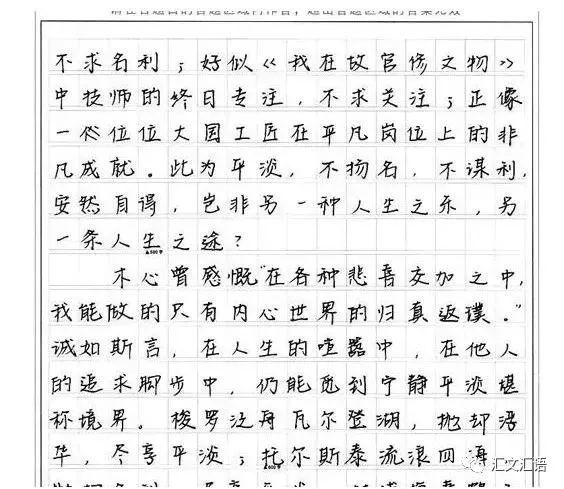 不求名利；好似《我在故宫修文物》
中技师的终日专注，不求关注；正像
一个个位位大国工匠在平凡岗位上的非
凡成就。此为平淡，不扬名，不谋利，
安然自得，岂非另一种人生之乐，另
一条人生之途？
▲600字
木心曾感慨"在各种悲喜交加之中，
我能做的只有内心世界的归真返璞。"
诚如斯言，在人生的喧嚣中，在他人
的追求脚步中，仍能觅到宁静平淡堪
称境界。梭罗泛舟瓦尔登湖，抛却浮
华，尽享平淡；托尔斯泰流浪四海
汇文汇语